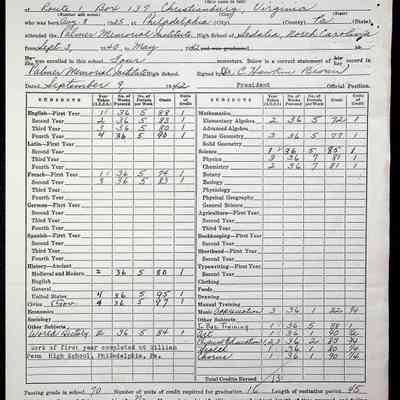 (Give name in full)
at Route 1 Box 139 Christiansburg, Virginia
(Number and street)
who was born 1925 Philadelphia (City) (County) Pa
attended the Palmer Memorial Institute High School, of Sedalia, North Carolina
from Sept 3, 1940, to May
enrolled in this school semesters. Below is a correct statement of record in
Palmer Memorial Institute High School. Signed by C. Hawkins Brown
Dated September 9 1942 President Official Position.
SUBJECTS Year Taken (1,2,3,4) No. of Weeks Pursued No. of Periods per Week Grade Units of Credit
English—First Year 1 36 5 88 1
Second Year 2 36 5 83 1
Third Year 3 36 5 80 1
Fourth Year 4 36 5 90 1
Latin—First Year
Second Year
Third Year
Fourth Year
French—First Year 1 36 5 74 1
Second Year 3 36 5 83 1
Third Year
Fourth Year
German—First Year
Second Year
Third Year
Fourth Year
Spanish—First Year
Second Year
Third Year
Fourth Year
History—Ancient
Medieval and Modern 2 36 5 80 1
English
General
United States 4 36 5 95 1
Civics Gov. 4 36 5 97 1
Economics
Sociology
Other Subjects
World History 2 36 5 84 1
Work of first year completed at William
Penn High School, Philadelphia, Pa.
SUBJECTS Year Taken (1,2,3,4) No. of Weeks Pursued No. of Periods per Week Grade Units of Credit
Mathematics
Elementary Algebra 2 36 5 72 1
Advanced Algebra
Plane Geometry 3 36 5 77 1
Solid Geometry
Science 1 36 5 85 1
Physics 3 36 7 81 1
Chemistry 2 36 7 81 1
Botany
Zoology
Physiology
Physical Geography
General Science
Agriculture—First Year
Second Year
Bookkeeping—First Year
Second Year
Shorthand—First Year
Second Year
Typewriting—First Year
Second Year
Clothing
Foods
Drawing
Manual Training
Music Appreciation 3 36 1 22
Other Subjects
Jr. Bus. Training 1 36 5 88 1
Art 1 36 1 90
Physical Education 36 2 89
1 36 1 80
Chorus 1 36 1 90
Total Credits Earned
Passing grade in school 70 Number of units of credit required for graduation 16 Length of recitation period 45